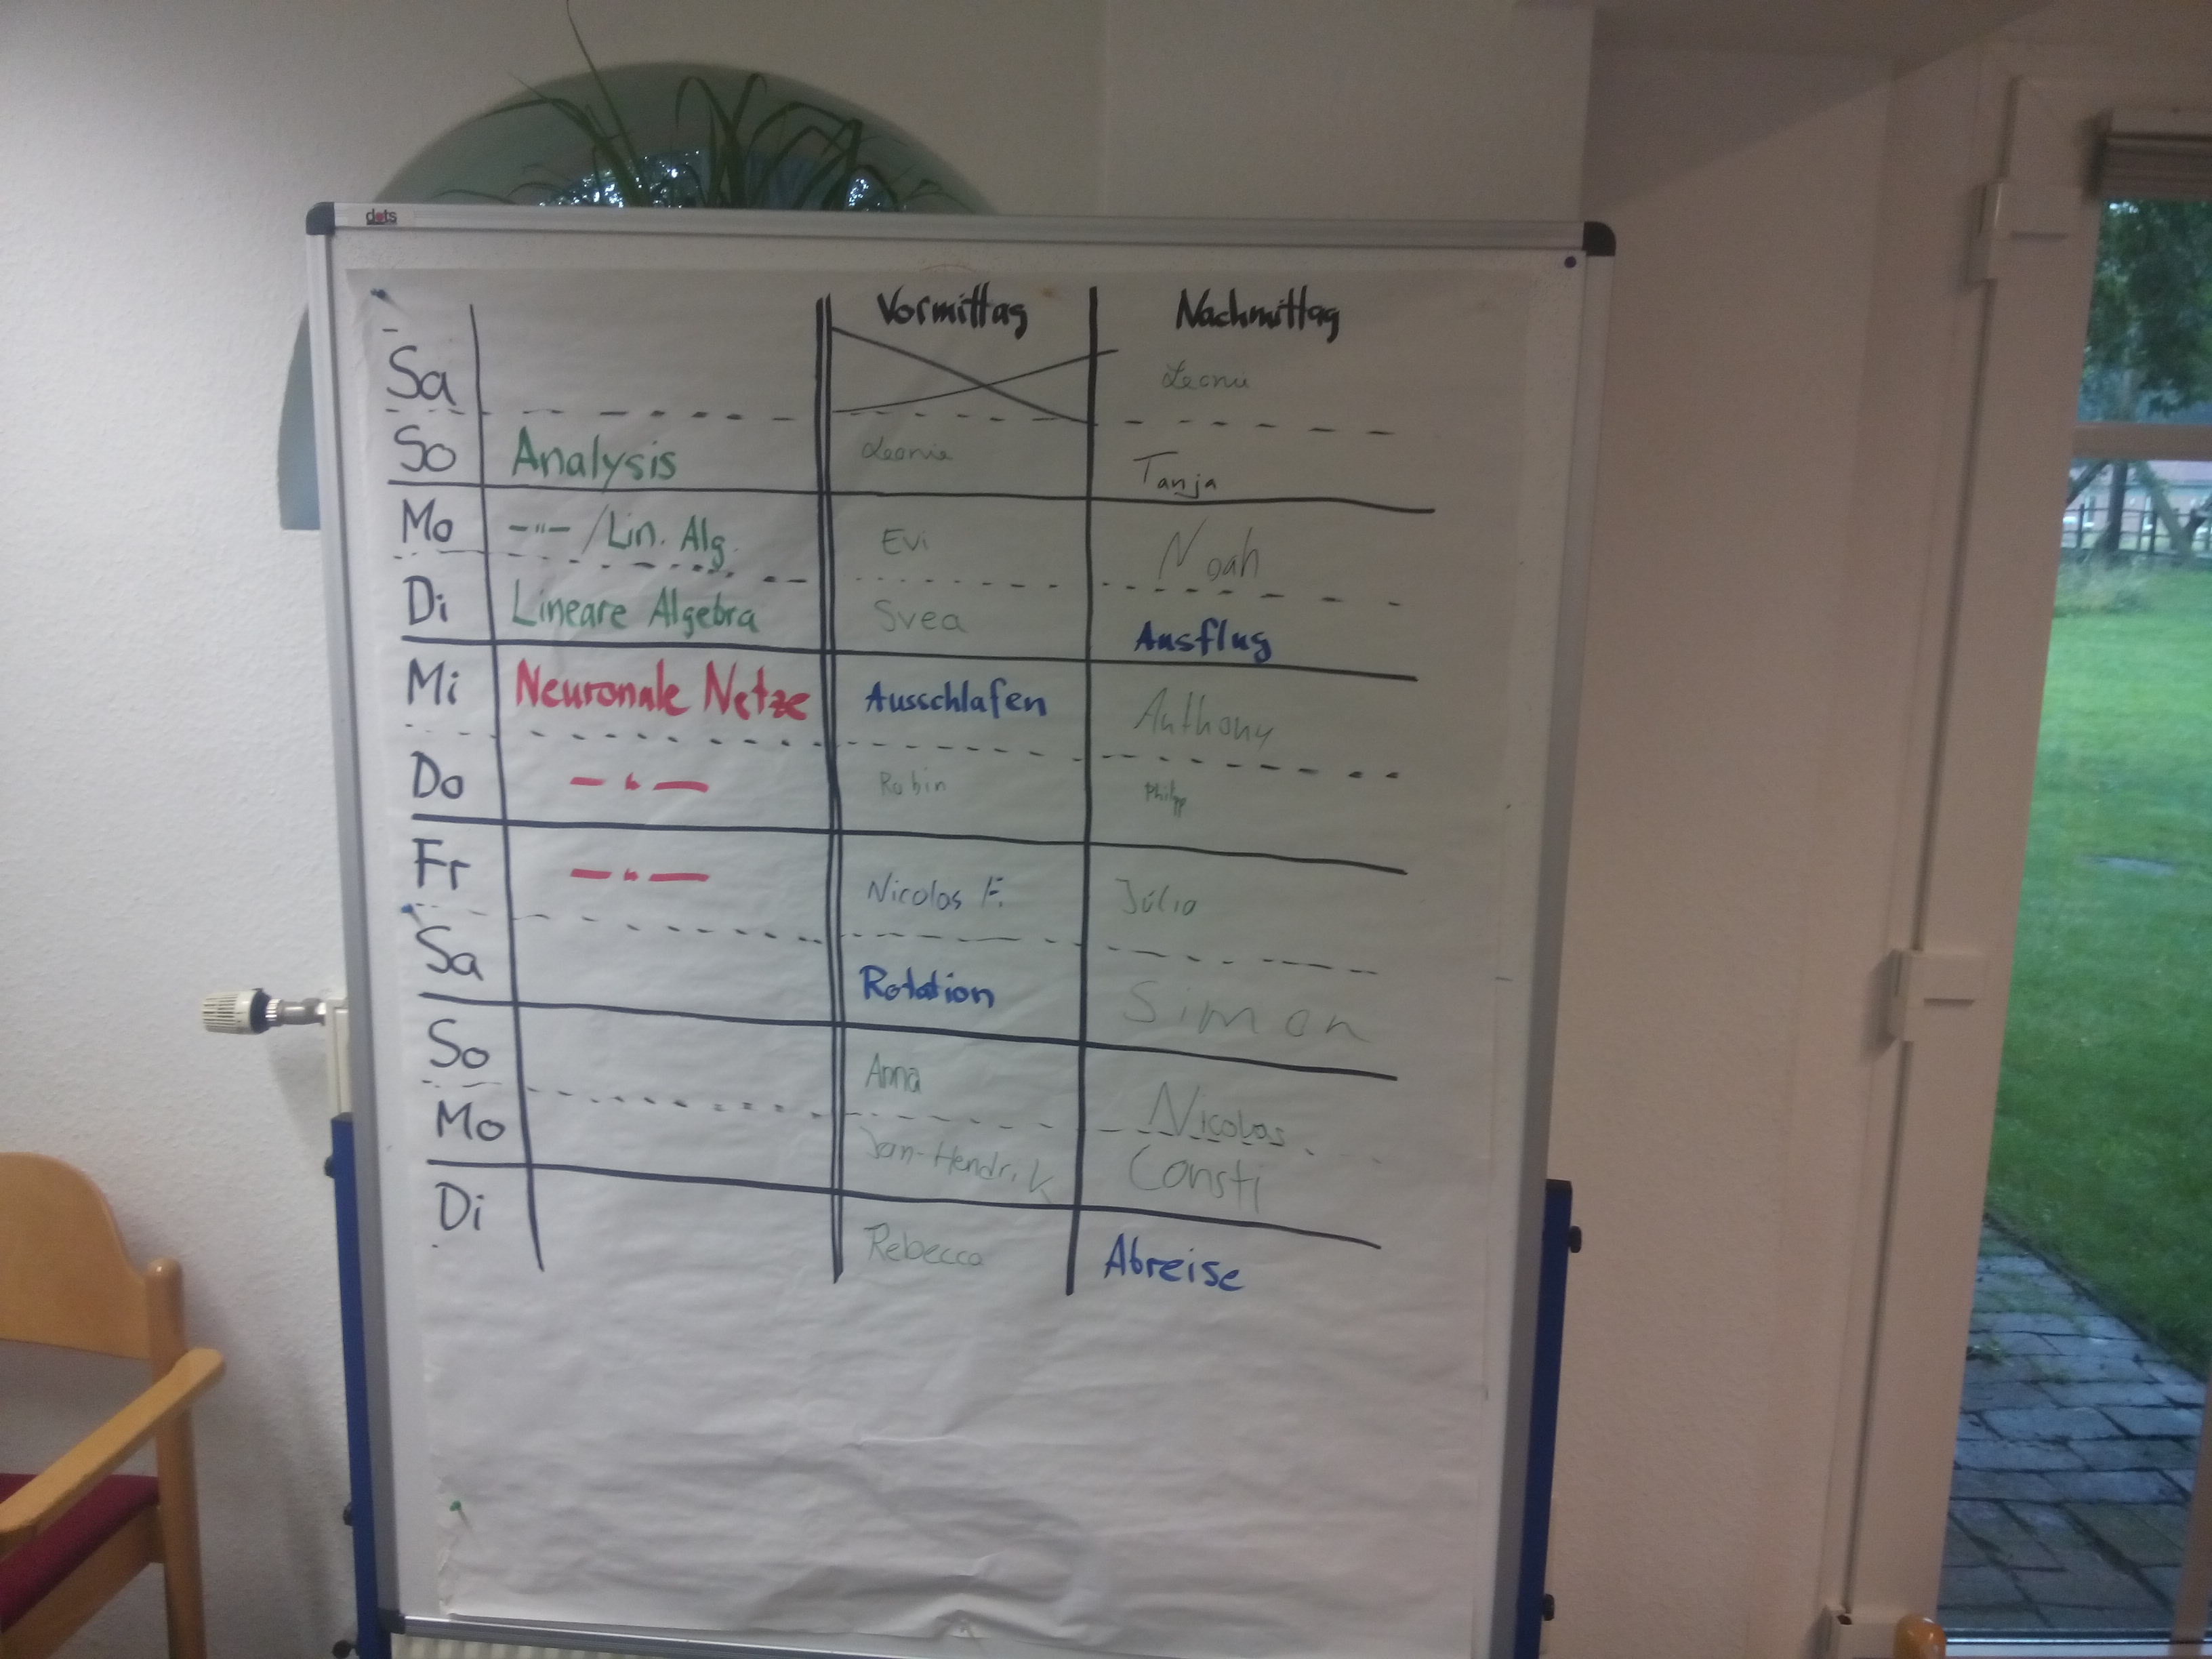 dots
Vormittag Nachmittag
Sa Leonie
So Analysis Leonie Tanja
Mo -"- / Lin. Alg. Evi Noah
Di Lineare Algebra Svea Ausflug
Mi Neuronale Netze Ausschlafen Anthony
Do -"- Robin Philipp
Fr -"- Nicolas F. Julia
Sa Rotation Simon
So Anna Nicolas
Mo Jan-Hendrik Consti
Di Rebecca Abreise